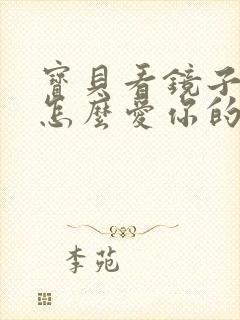 寶貝看鏡子
怎麼愛你的
李苑